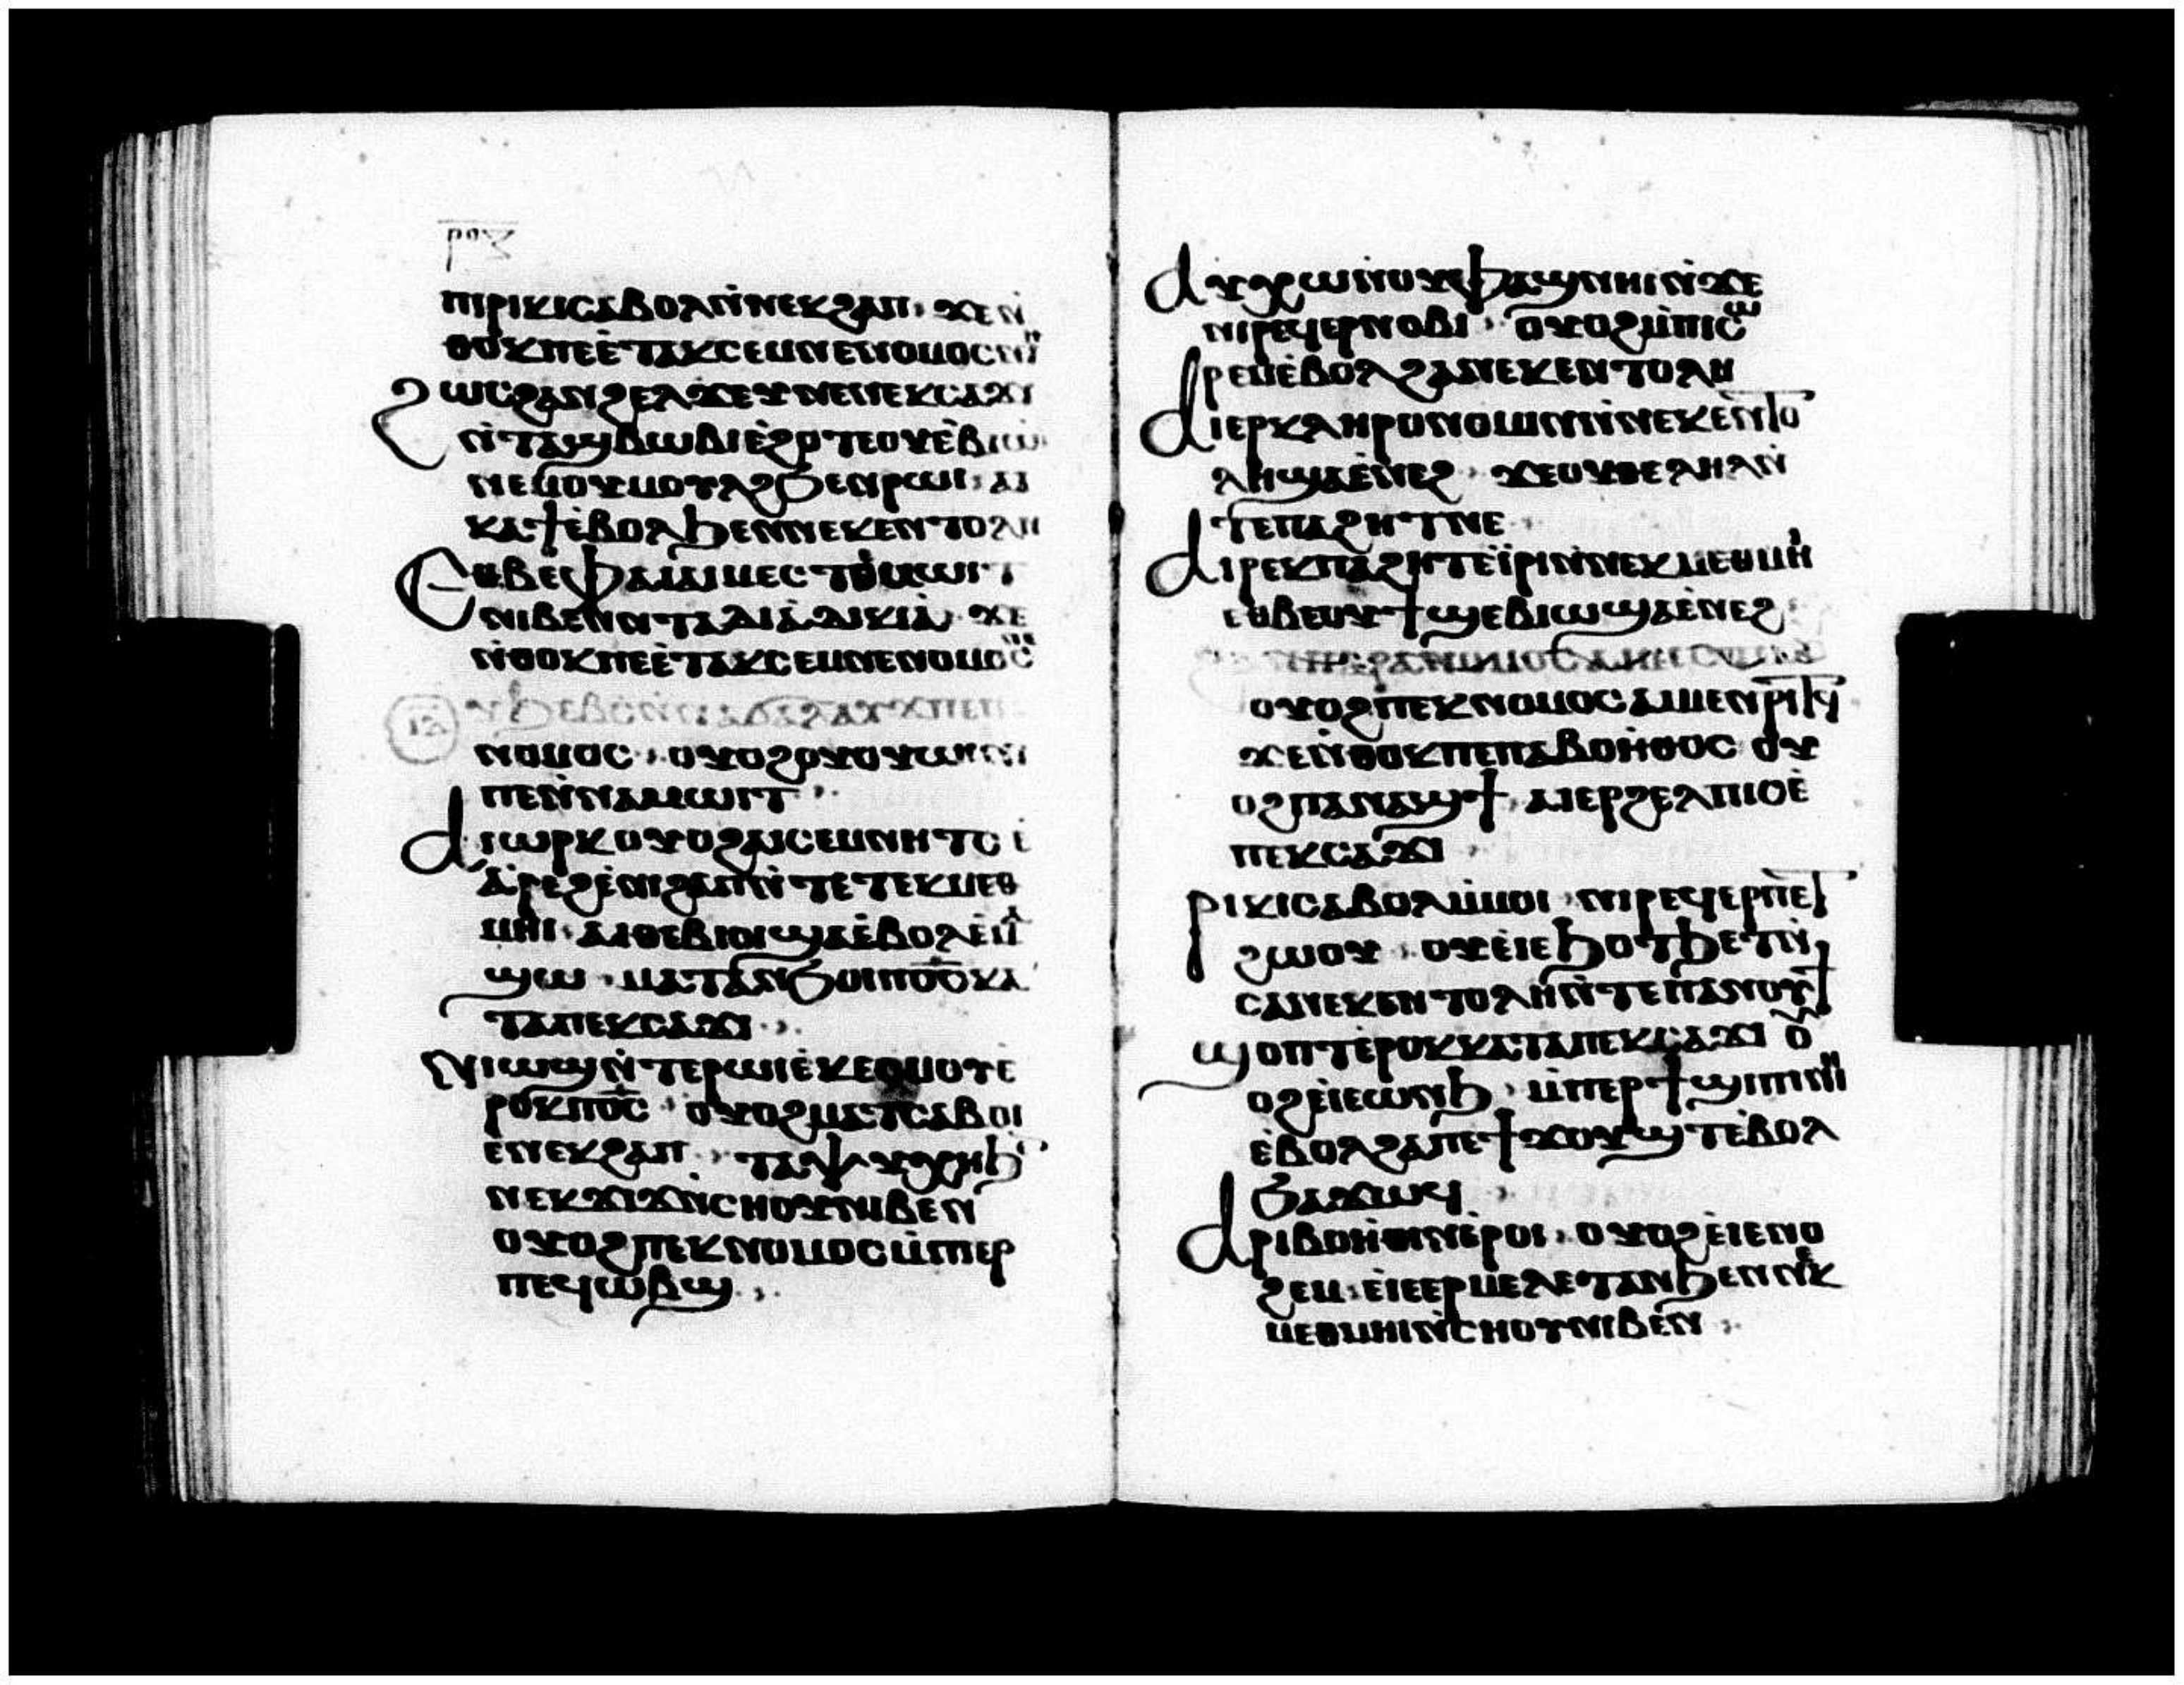 ⲣⲟⲍ
ⲙⲡⲓⲣⲓⲕⲓⲥⲁⲃⲟⲗⲛ̀ⲛⲉⲕϩⲁⲡ· ϫⲉⲛ̀
ⲑⲟⲕⲡⲉⲉ̀ⲧⲁⲕⲥⲉⲙⲛⲉⲛⲟⲙⲟⲥⲛⲏⲓ
ϩⲱⲥϩⲁⲛϩⲉⲗϫⲉⲩⲛⲉⲛⲉⲕⲥⲁϫⲓ
ⲛ̀ⲧⲁϣⲃⲱⲃⲓⲉ̀ϩⲟⲧⲉⲟⲩⲉ̀ⲃⲓⲱ
ⲛⲉⲙⲟⲩⲙⲟⲩⲗϩϧⲉⲛⲣⲱⲓ· ⲁⲓ
ⲕⲁϯⲉ̀ⲃⲟⲗϧⲉⲛⲛⲉⲕⲉⲛⲧⲟⲗⲏ
Ⲉⲑⲃⲉⲫⲁⲓⲁⲓⲙⲉⲥⲧⲉⲙⲱⲓⲧ
ⲛⲓⲃⲉⲛⲛ̀ⲧⲁⲇⲓⲁⲇⲓⲕⲓⲁ· ϫⲉ
ⲛ̀ⲑⲟⲕⲡⲉⲉ̀ⲧⲁⲕⲥⲉⲙⲛⲉⲛⲟⲙⲟⲥ
ⲛⲟⲙⲟⲥ· ⲟⲩⲟϩⲟⲩⲟⲩⲱⲓⲛⲓ
ⲡⲉⲛ̀ⲛⲁⲙⲱⲓⲧ·
Ⲁⲓⲱⲣⲕⲟⲩⲟϩⲁⲓⲥⲉⲙⲛⲏⲧⲥ ⲉ̀
ⲁ̀ⲣⲉϩⲉ̀ⲛⲓϩⲁⲡⲛ̀ⲧⲉⲧⲉⲕⲙⲉⲑ
ⲙⲏⲓ· ⲁⲓⲑⲉⲃⲓⲟⲓϣⲁⲉ̀ⲃⲟⲗⲉ̀ⲙⲁ
ϣⲱ· ⲙⲁⲧⲁⲛϧⲟⲓⲡⲟ̅ⲥ̅ⲕⲁ
ⲧⲁⲡⲉⲕⲥⲁϫⲓ·
Ⲛⲓⲱϣⲛ̀ⲧⲉⲣⲱⲓⲉ̀ⲕⲉϭⲙⲟⲧⲉ̀
ⲣⲟⲕⲡⲟ̅ⲥ̅· ⲟⲩⲟϩⲙⲁⲧⲥⲁⲃⲟⲓ
ⲉ̀ⲛⲉⲕϩⲁⲡ· ⲧⲁⲯⲩⲭⲏϧ
ⲛⲉⲕϫⲓϫⲛ̀ⲥⲏⲟⲩⲛⲓⲃⲉⲛ
ⲟⲩⲟϩⲡⲉⲕⲛⲟⲙⲟⲥⲙ̀ⲡⲉⲣ
ⲡⲉϥⲱⲃϣ·
Ⲁⲩⲭⲱⲛⲟⲩⲫⲁϣⲛⲏⲓⲛ̀ϫⲉ
ⲛⲓⲣⲉϥⲉⲣⲛⲟⲃⲓ· ⲟⲩⲟϩⲙ̀ⲡⲓⲥⲱ
ⲣⲉⲙⲉ̀ⲃⲟⲗϩⲁⲛⲉⲕⲉⲛⲧⲟⲗⲏ
Ⲁⲓⲉⲣⲕⲗⲏⲣⲟⲛⲟⲙⲓⲛⲛ̀ⲛⲉⲕⲉⲛⲧⲟ
ⲗⲏϣⲁⲉ̀ⲛⲉϩ· ϫⲉⲟⲩⲑⲉⲗⲏⲗⲛ̀
ⲧⲉⲡⲁϩⲏⲧⲛⲉ·
Ⲁⲓⲣⲉⲕⲡⲁϩⲏⲧⲉ̀ⲓⲣⲓⲛ̀ⲛⲉⲕⲙⲉⲑⲙⲏⲓ
ⲉⲑⲃⲉⲟⲩϯϣⲉⲃⲓⲱϣⲁⲉ̀ⲛⲉϩ
ⲟⲩⲟϩⲡⲉⲕⲛⲟⲙⲟⲥⲁⲓⲙⲉⲛⲣⲓⲧϥ
ϫⲉⲛ̀ⲑⲟⲕⲡⲉⲡⲁⲃⲟⲏ̀ⲑⲟⲥ ⲟⲩ
ⲟϩⲡⲁⲛⲁϣϯ· ⲁⲓⲉⲣϩⲉⲗⲡⲓⲥⲉ̀
ⲡⲉⲕⲥⲁϫⲓ·
Ⲣⲓⲕⲓⲥⲁⲃⲟⲗⲙ̀ⲙⲟⲓ· ⲛⲓⲣⲉϥⲉⲣⲡⲉⲧ
ϩⲱⲟⲩ· ⲟⲩⲉ̀ⲓⲉϧⲟⲧϧⲉⲧⲛ̀
ⲥⲁⲛⲉⲕⲉⲛⲧⲟⲗⲏⲛ̀ⲧⲉⲡⲁⲛⲟⲩϯ
Ϣⲟⲡⲧⲉ̀ⲣⲟⲕⲕⲁⲧⲁⲡⲉⲕⲥⲁϫⲓ ⲟⲩ
ⲟϩⲉ̀ⲓⲉⲱⲛϧ· ⲙ̀ⲡⲉⲣϯϣⲓⲡⲓⲛⲏⲓ
ⲉ̀ⲃⲟⲗϩⲁⲡⲉϯϫⲟⲩϣⲧⲉ̀ⲃⲟⲗ
ϧⲁϫⲱϥ·
Ⲁⲣⲓⲃⲟⲏ̀ⲑⲓⲛⲉ̀ⲣⲟⲓ· ⲟⲩⲟϩⲉ̀ⲓⲉⲛⲟ
ϩⲉⲙ· ⲉ̀ⲓⲉⲉⲣⲙⲉⲗⲉⲧⲁⲛϧⲉⲛⲛⲉⲕ
ⲙⲉⲑⲙⲏⲓⲛ̀ⲥⲏⲟⲩⲛⲓⲃⲉⲛ·